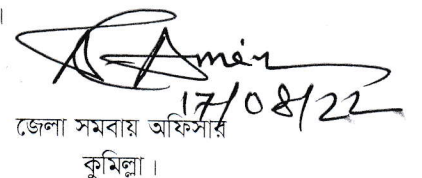 Amin
17/08/22
জেলা সমবায় অফিসার
কুমিল্লা।